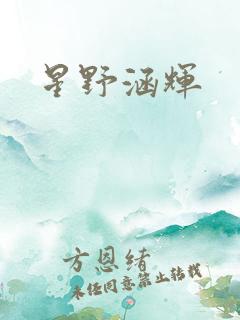 星野涵輝
方恩緒
未经同意禁止转载